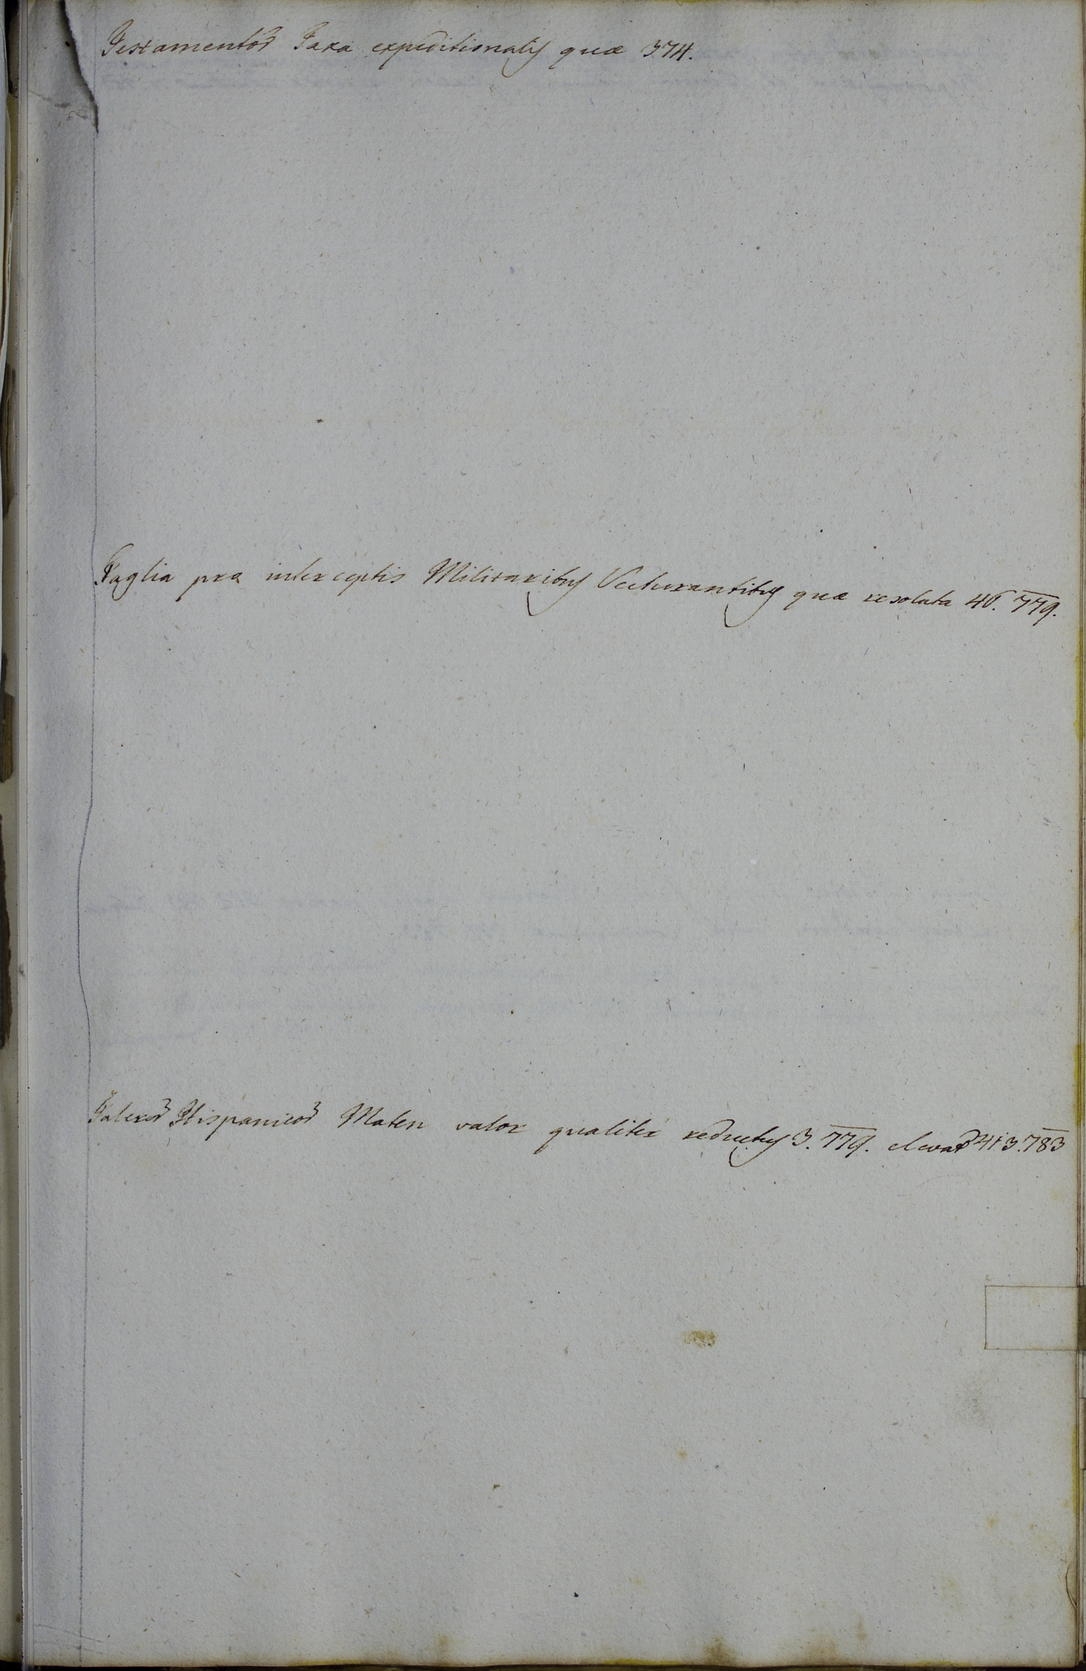 Testamentor̃ Taxa expeditionalis quæ 374.
Taglia pro interceptis Militaribus Vecturantibus quæ resoluta 46. 779.
Taleror̃ Hispanicor̃ Maten valor qualiter reductus 3. 779. elevat 413. 783